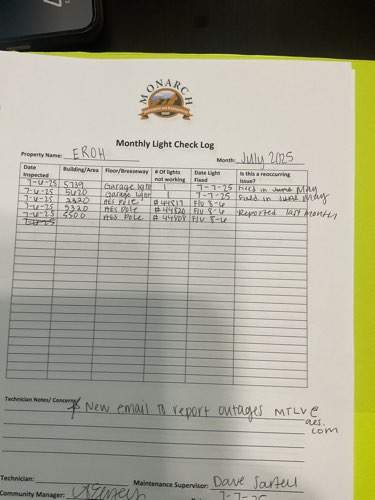 MONARCH
Monthly Light Check Log
Property Name: EROH
Month: July 2025
Date Inspected Building/Area Floor/Breezeway # Of lights not working Date Light Fixed Is this a reoccurring issue?
7-6-25 5739 Garage light 1 7-7-25 Fixed in June May
7-6-25 5620 Garage light 1 7-7-25 Fixed in June May
7-6-25 AES Pole #44817 F/U 8-6
7-6-25 5320 AES Pole #44820 F/U 8-6 Reported last month
7-6-25 5500 AES Pole #44808 F/U 8-6
7-6-25
Technician Notes/ Concerns
* New email to report outages MTLV@
aes.
com
Technician:
Maintenance Supervisor: Dave Sartell
Community Manager:
7-7-25